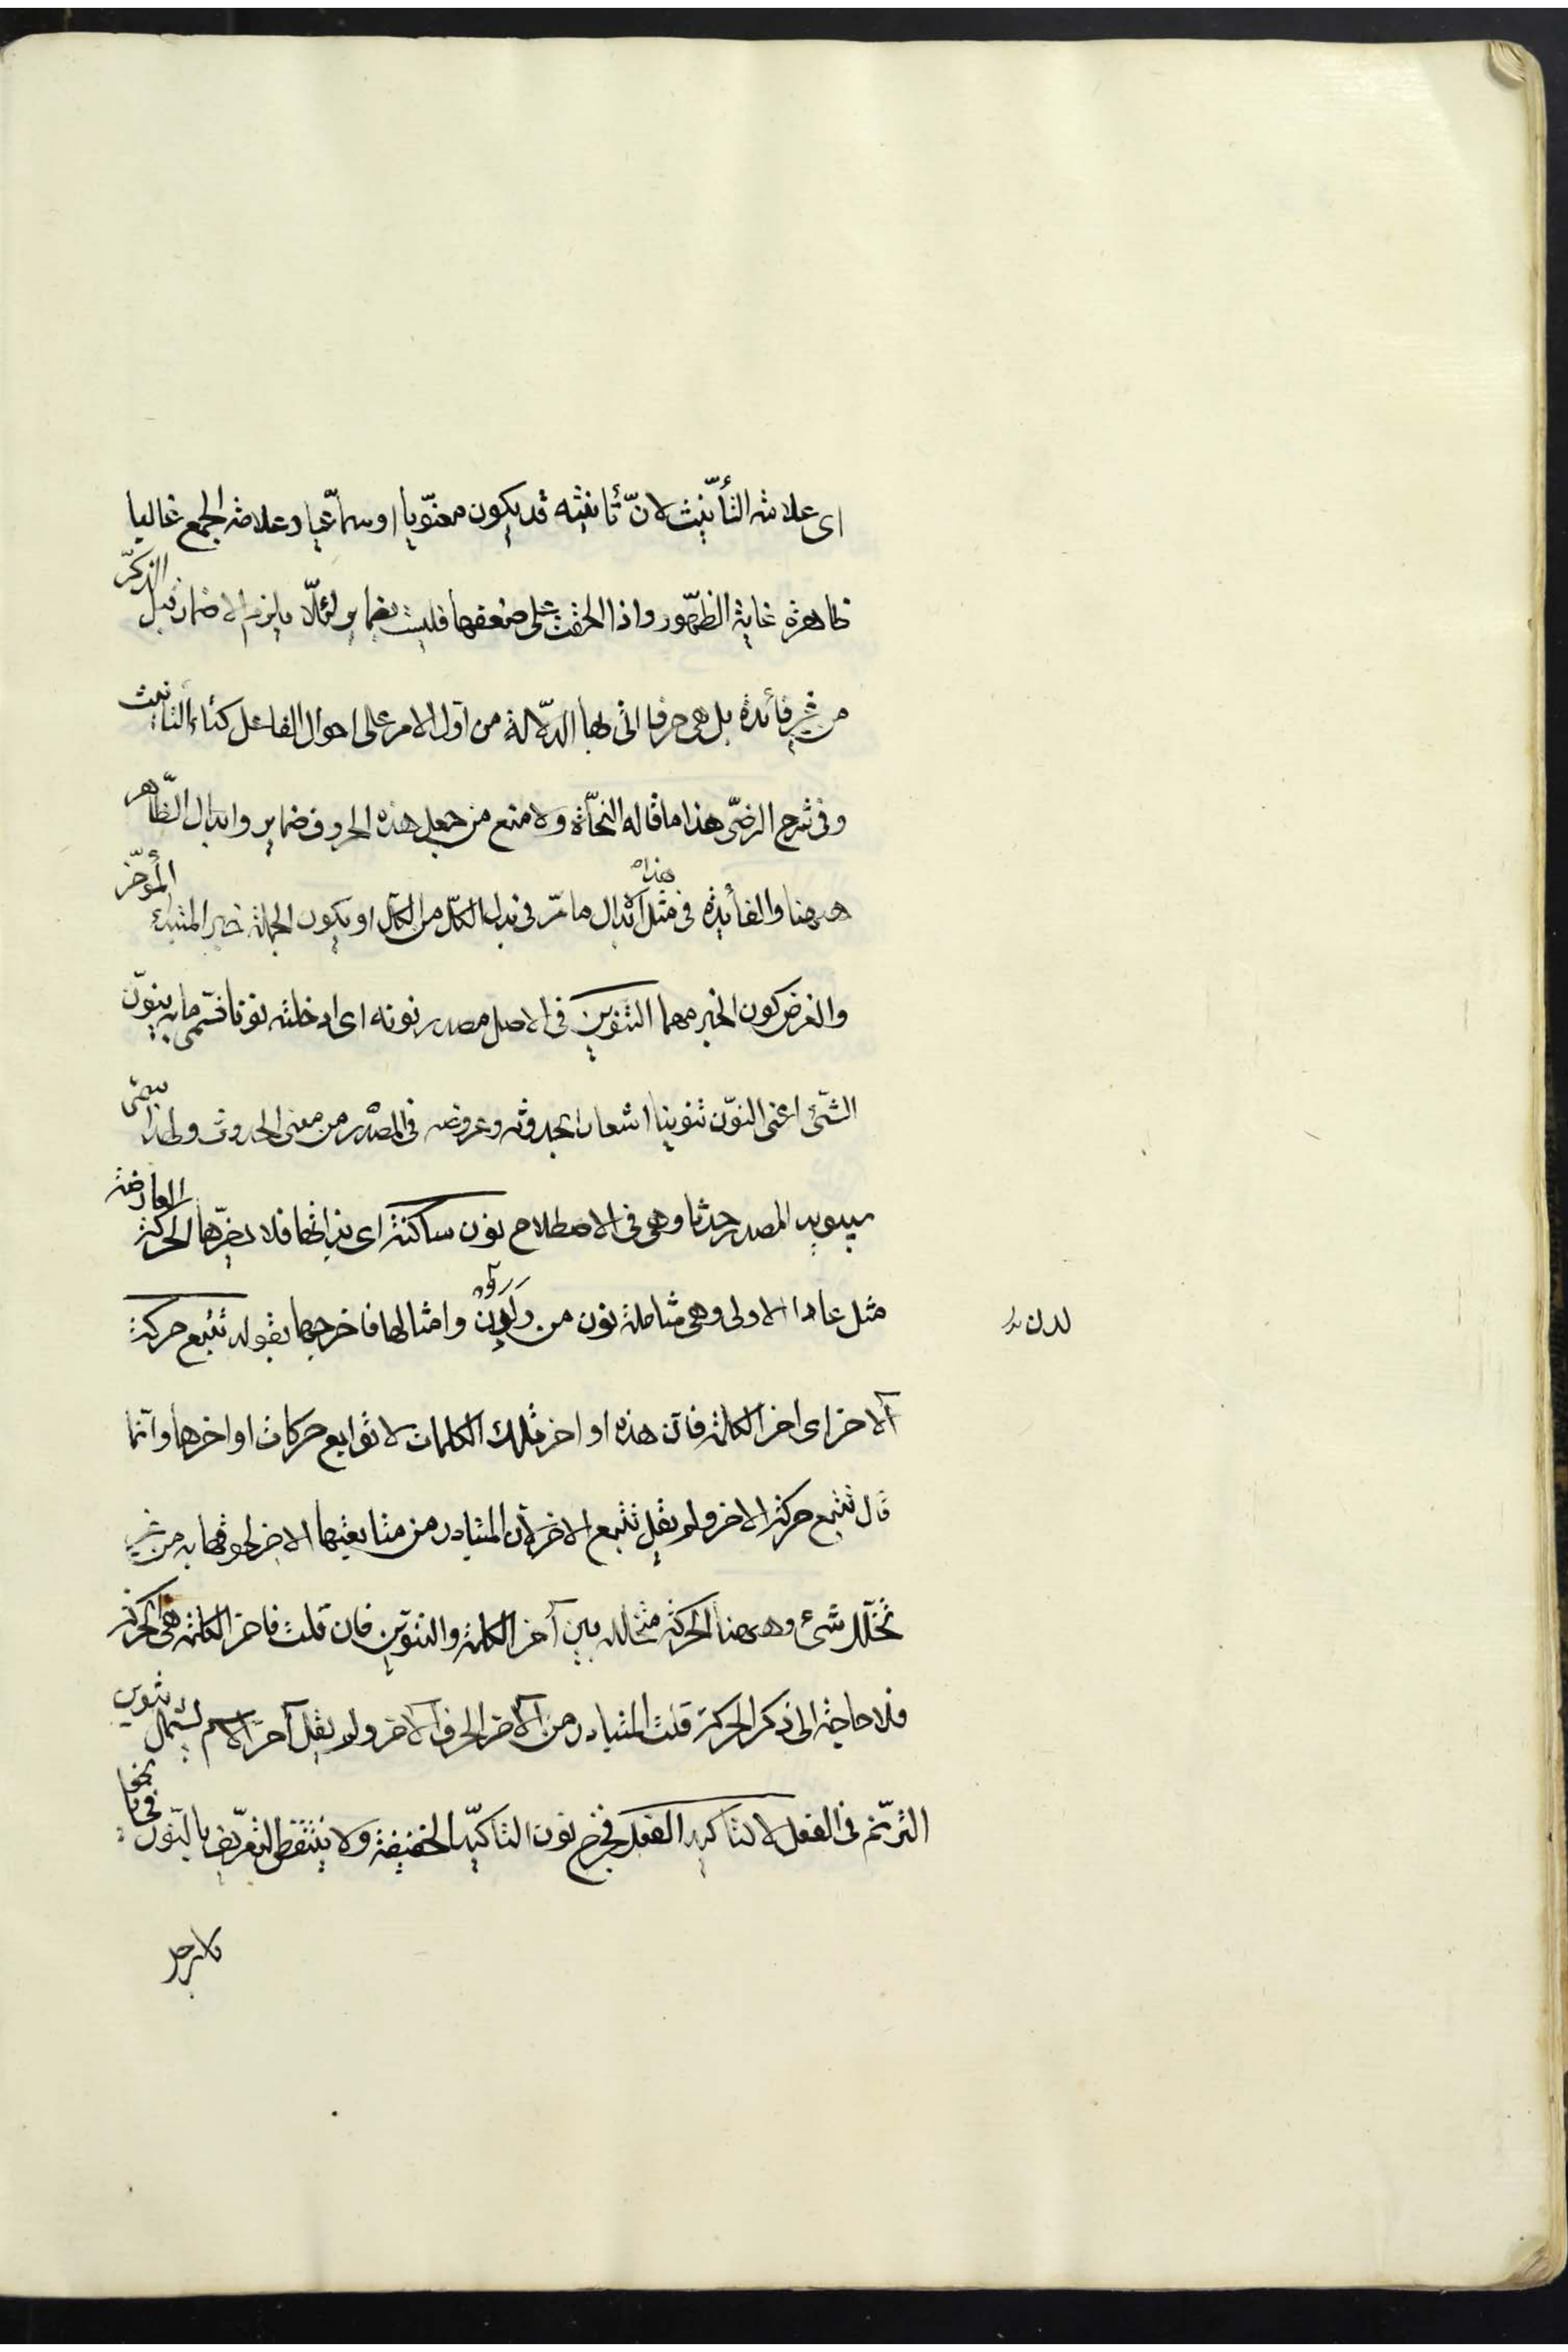 اى علامة التأنيث لانّ تأنيثه قد يكون معنويا او سماعيا وعلامة الجمع غالبا
ظاهرة غاية الظهور واذا الحقت على ضعفها فليست بضماير لئلّا يلزم الاضمار قبل الذكر
من غير فائدة بل هى حرف اتى بها الدلالة من اول الامر على احوال الفاعل كتاء التأنيث
وفى شرح الرضى هذا ما قاله النحاة ولا منع من جعل هذه الحروف ضماير وابدال الظاهر
ههنا والفائدة فى مثل هذا الابدال ما مرّ فى بدل الكل من الكل او يكون الجملة خبر المبتداء المؤخر
والغرض كون الخبر مهما التنوين فى الاصل مصدر نونته اى ادخلته نونا فسمى ما به ينون
الشئ اعنى النون تنوينا اشعارا بحدوثه وعروضه فى المصدر من معنى الحدوث ولهذا سمى
سيبويه المصدر حدثا وهى فى الاصطلاح نون ساكنة اى بذاتها فلا يضرها الحركة العارضة
مثل عادا الاولى وهى شاملة نون من ولدن وامثالها فاخرجها بقوله تتبع حركة
لدن
الآخر اى اخر الكلمة فان هذه اواخر تلك الكلمات لا توابع حركات اواخرها وانما
قال تتبع حركة الاخر ولم يقل تتبع الاخر لان المتبادر من متابعتها الاخر لحوقها به من غير
تخلل شئ وههنا الحركة متخللة بين آخر الكلمة والتنوين فان قلت فاخر الكلمة هى الحركة
فلا حاجة الى ذكر الحركة قلت المتبادر من الآخر الحرف الآخر ولم يقل آخر الاسم ليشمل تنوين
الترنم فى الفعل لا لتاكيد الفعل فخرج نون التاكيد الخفيفة ولا ينتقض التعريف بالنون فى نحو